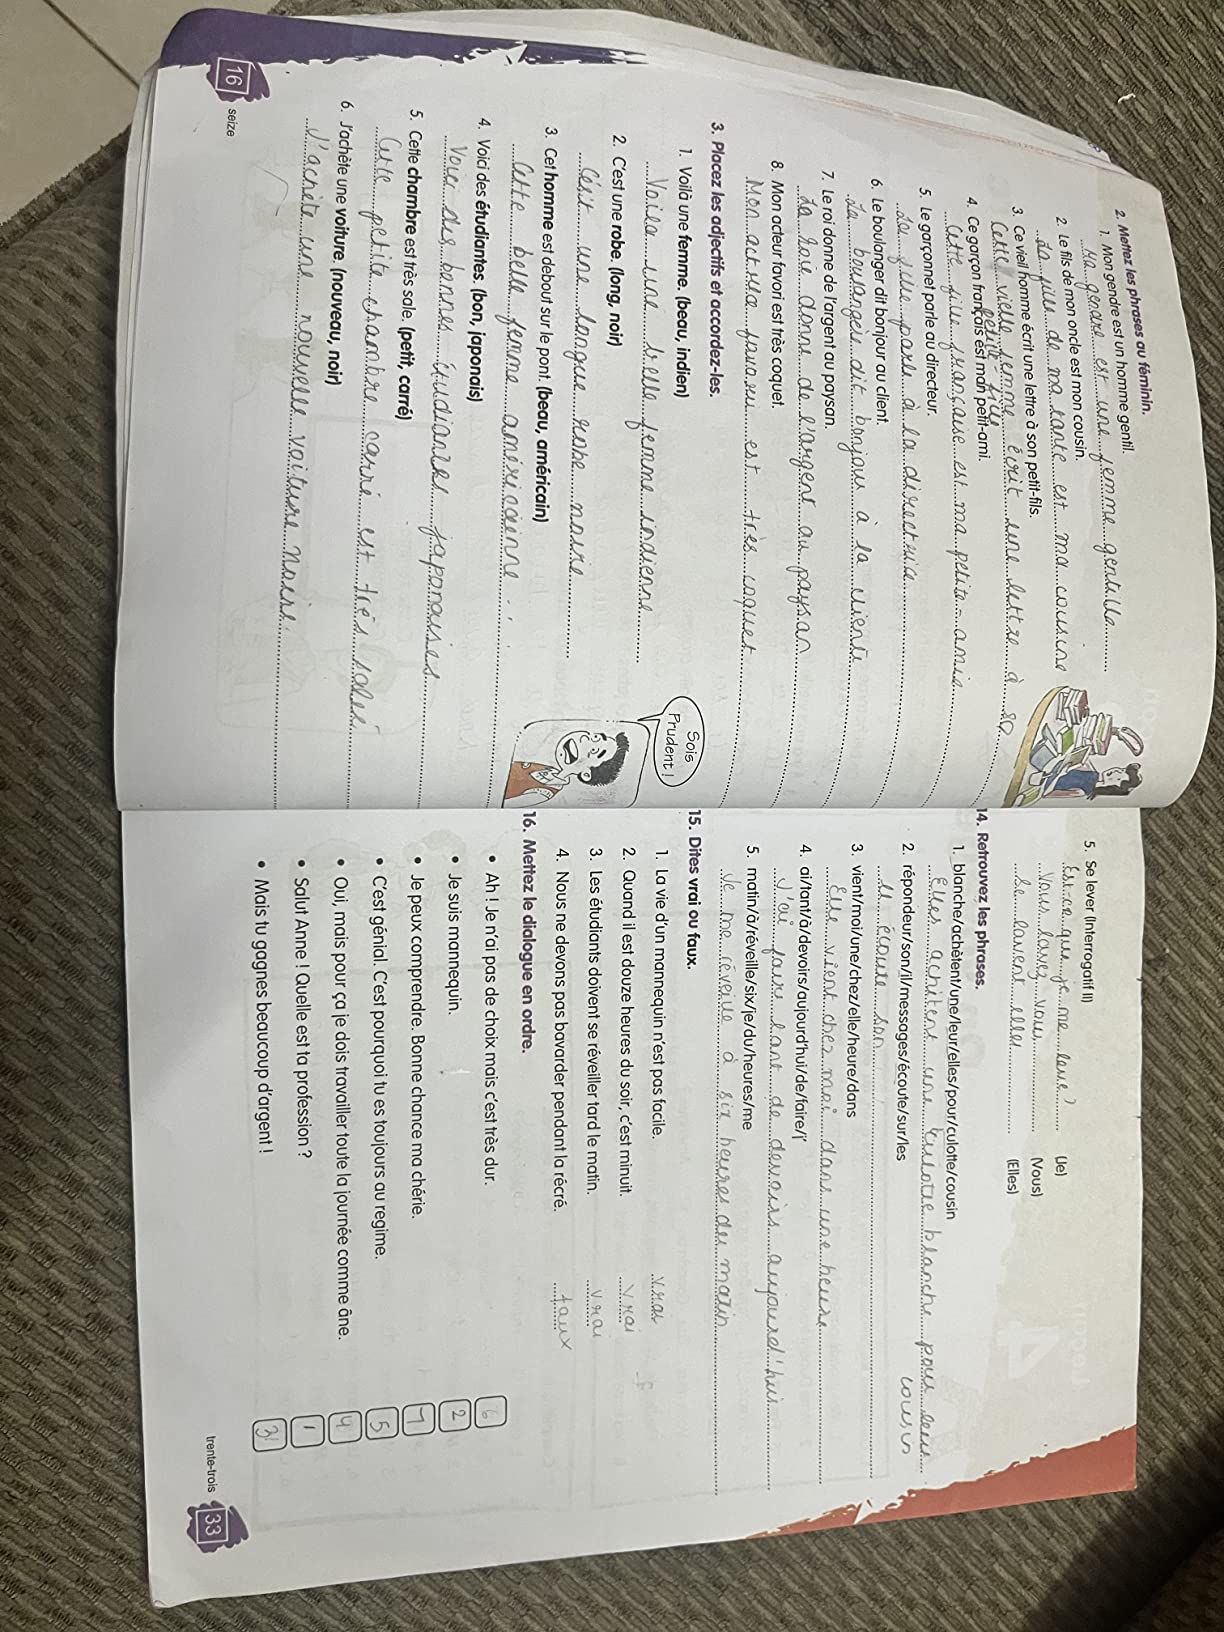 2. Mettez les phrases au féminin.
1. Mon gendre est un homme gentil.
Ma gendre est une femme gentille
2. Le fils de mon oncle est mon cousin.
La fille de ma tante est ma cousine
3. Ce vieil homme écrit une lettre à son petit-fils.
Cette vielle femme écrit une lettre à sa
petite-fille
4. Ce garçon français est mon petit-ami.
Cette fille française est ma petite-amie
5. Le garçonnet parle au directeur.
La fille parle à la directrice
6. Le boulanger dit bonjour au client.
La boulangère dit bonjour à la cliente
7. Le roi donne de l'argent au paysan.
La roie donne de l'argent au paysan
8. Mon acteur favori est très coquet.
Mon actrice favori est très coquet
3. Placez les adjectifs et accordez-les.
1. Voilà une femme. (beau, indien)
Voila une belle femme indienne
2. C'est une robe. (long, noir)
C'est une longue robe noire
3. Cet homme est debout sur le pont. (beau, américain)
Cette belle femme américaine
4. Voici des étudiantes. (bon, japonais)
Voici des bonnes étudiantes japonaises
5. Cette chambre est très sale. (petit, carré)
Cette petite chambre carré est très salée
6. J'achète une voiture. (nouveau, noir)
J'achète une nouvelle voiture noire.
16
seize
Sois
Prudent !
5. Se lever (Interrogatif II)
Est-ce que je me leve? (Je)
Vous lavez vous (Nous)
Se lavent elles (Elles)
14. Retrouvez les phrases.
1. blanche/achètent/une/leur/elles/pour/culotte/cousin
Elles achètent une culotte blanche pour leur
cousin
2. répondeur/son/il/messages/écoute/sur/les
Il écoute son
3. vient/moi/une/chez/elle/heure/dans
Elle vient chez moi dans une heure
4. ai/tant/à/devoirs/aujourd'hui/de/faire/j'
J'ai faire tant de devoirs aujourd'hui
5. matin/à/réveille/six/je/du/heures/me
Je me réveille à six heures du matin
15. Dites vrai ou faux.
1. La vie d'un mannequin n'est pas facile. vrai
2. Quand il est douze heures du soir, c'est minuit. vrai
3. Les étudiants doivent se réveiller tard le matin. vrai
4. Nous ne devons pas bavarder pendant la récré. faux
16. Mettez le dialogue en ordre.
• Ah ! Je n'ai pas de choix mais c'est très dur. 6
• Je suis mannequin. 2
• Je peux comprendre. Bonne chance ma chérie. 7
• C'est génial. C'est pourquoi tu es toujours au regime. 5
• Oui, mais pour ça je dois travailler toute la journée comme âne. 4
• Salut Anne ! Quelle est ta profession ? 1
• Mais tu gagnes beaucoup d'argent ! 3
trente-trois
33